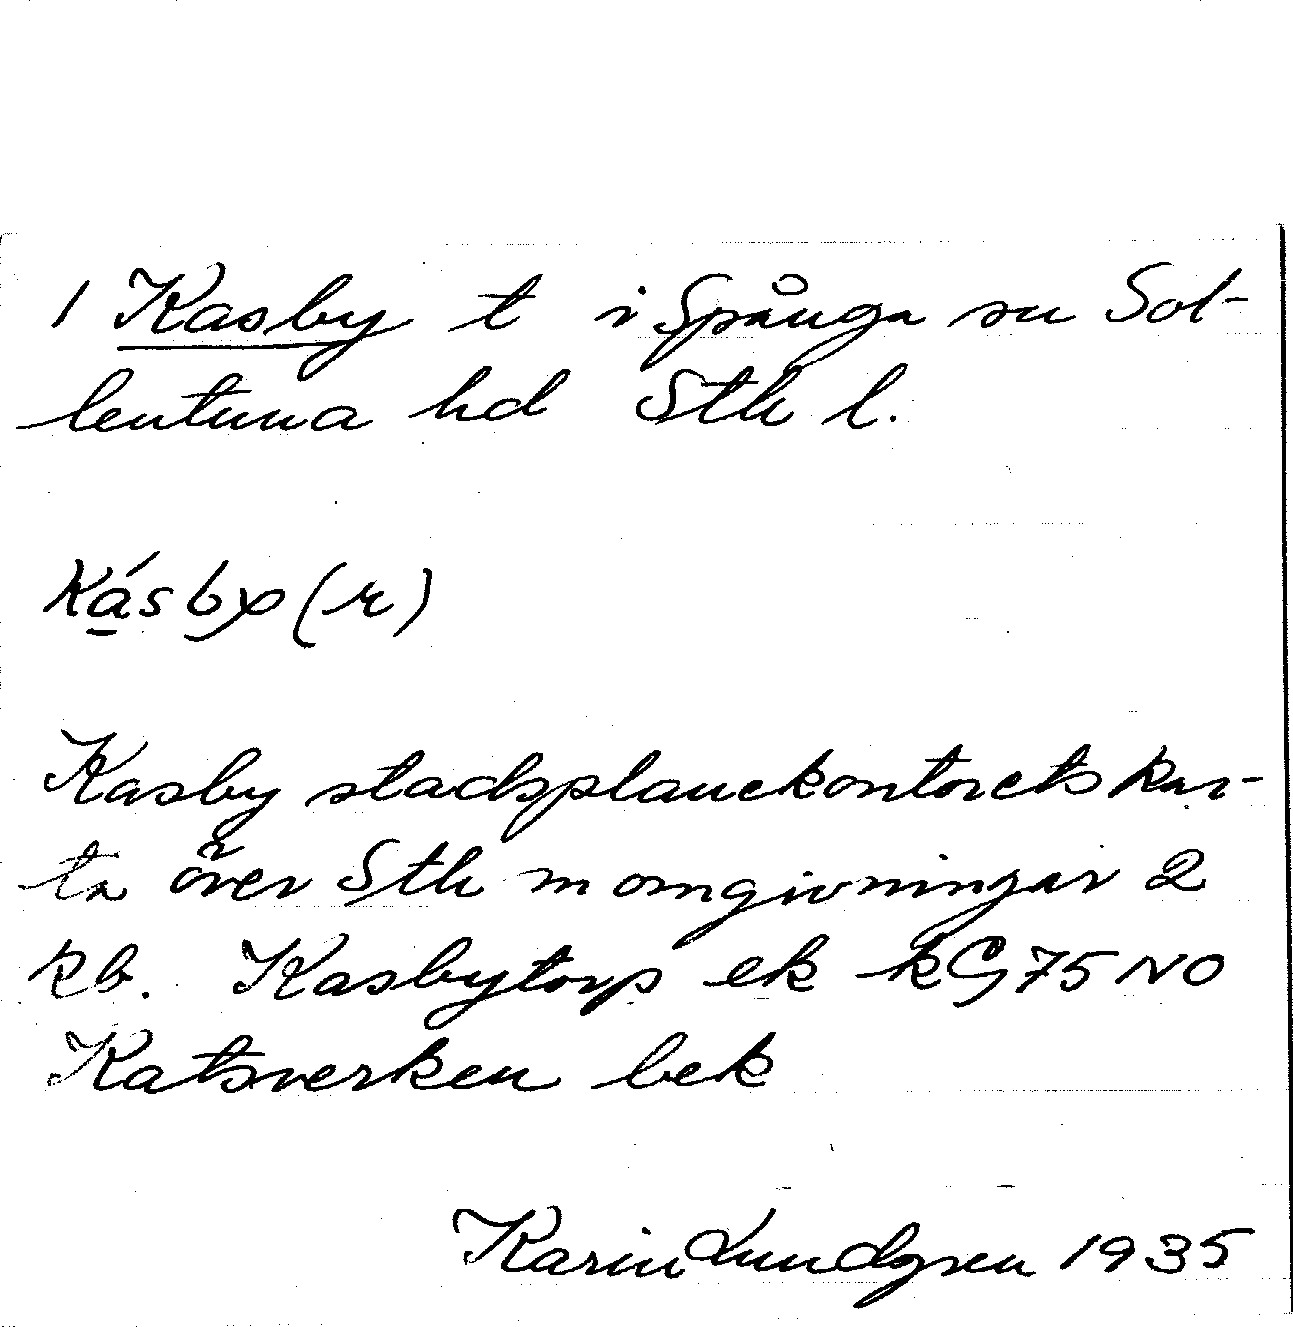 1 Kasby t i Spånga sn Sol-
lentuna hd Sth l.
Kásby (r)
Kasby stadsplanekontorets kar-
ta över Sth m omgivningar 2
kb. Kasbytorp ek kG75NO
Katsverken bek
Karin Lundgren 1935